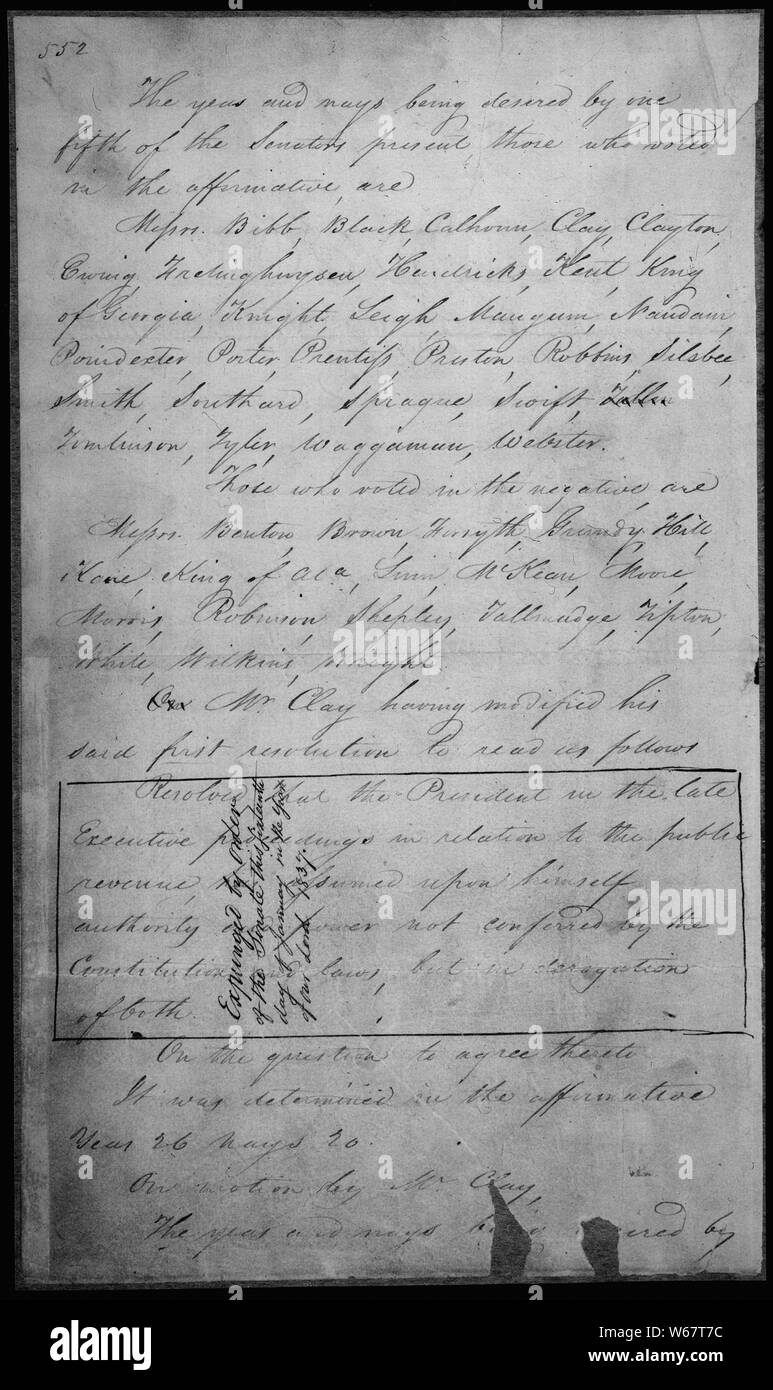 552
The yeas and nays being desired by one
fifth of the Senators present, those who voted
in the affirmative, are
Messrs. Bibb, Black, Calhoun, Clay, Clayton,
Ewing, Frelinghuysen, Hendricks, Kent, King
of Georgia, Knight, Leigh, Mangum, Naudain,
Poindexter, Porter, Prentiss, Preston, Robbins, Silsbee,
Smith, Southard, Sprague, Swift,
Tomlinson, Tyler, Waggaman, Webster.
Those who voted in the negative, are
Messrs. Benton, Brown, Forsyth, Grundy, Hill,
Kane, King of Ala, Linn, McKean, Moore,
Morris, Robinson, Shepley, Tallmadge, Tipton,
White, Wilkins, Wright.
On Mr Clay having modified his
said first resolution to read as follows
Resolved that the President in the late
Executive proceedings in relation to the public
revenue, has assumed upon himself
authority and power not conferred by the
Constitution and laws, but in derogation
of both.
Expunged by order
of the Senate this sixteenth
day of January in the year
of our Lord 1837.
On the question to agree thereto
It was determined in the affirmative
Yeas 26 Nays 20.
On motion by Mr Clay,
The yeas and nays being desired by
alamy
alamy stock photo
a
alamy
Image ID: W67T7C
www.alamy.com